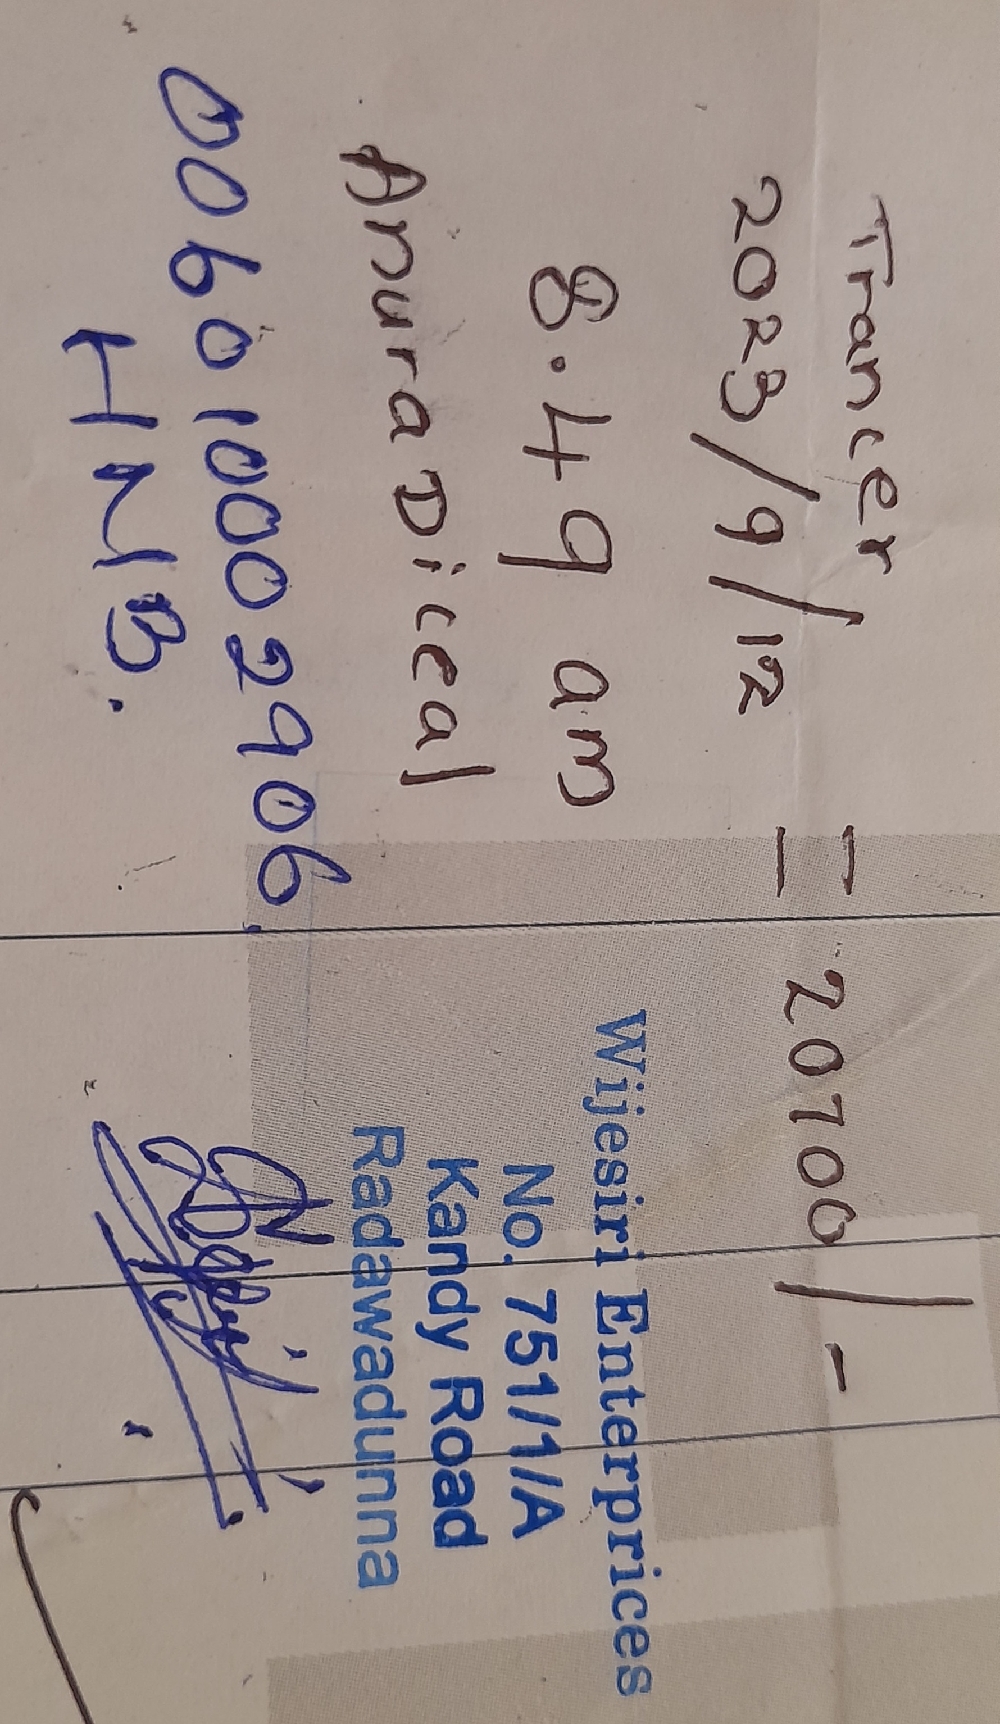 Trancer = 20700/-
2023/9/12
8.49 am
Anura Dical
006010002906.
HNB.
Wijesiri Enterprices
No. 751/1/A
Kandy Road
Radawadunna